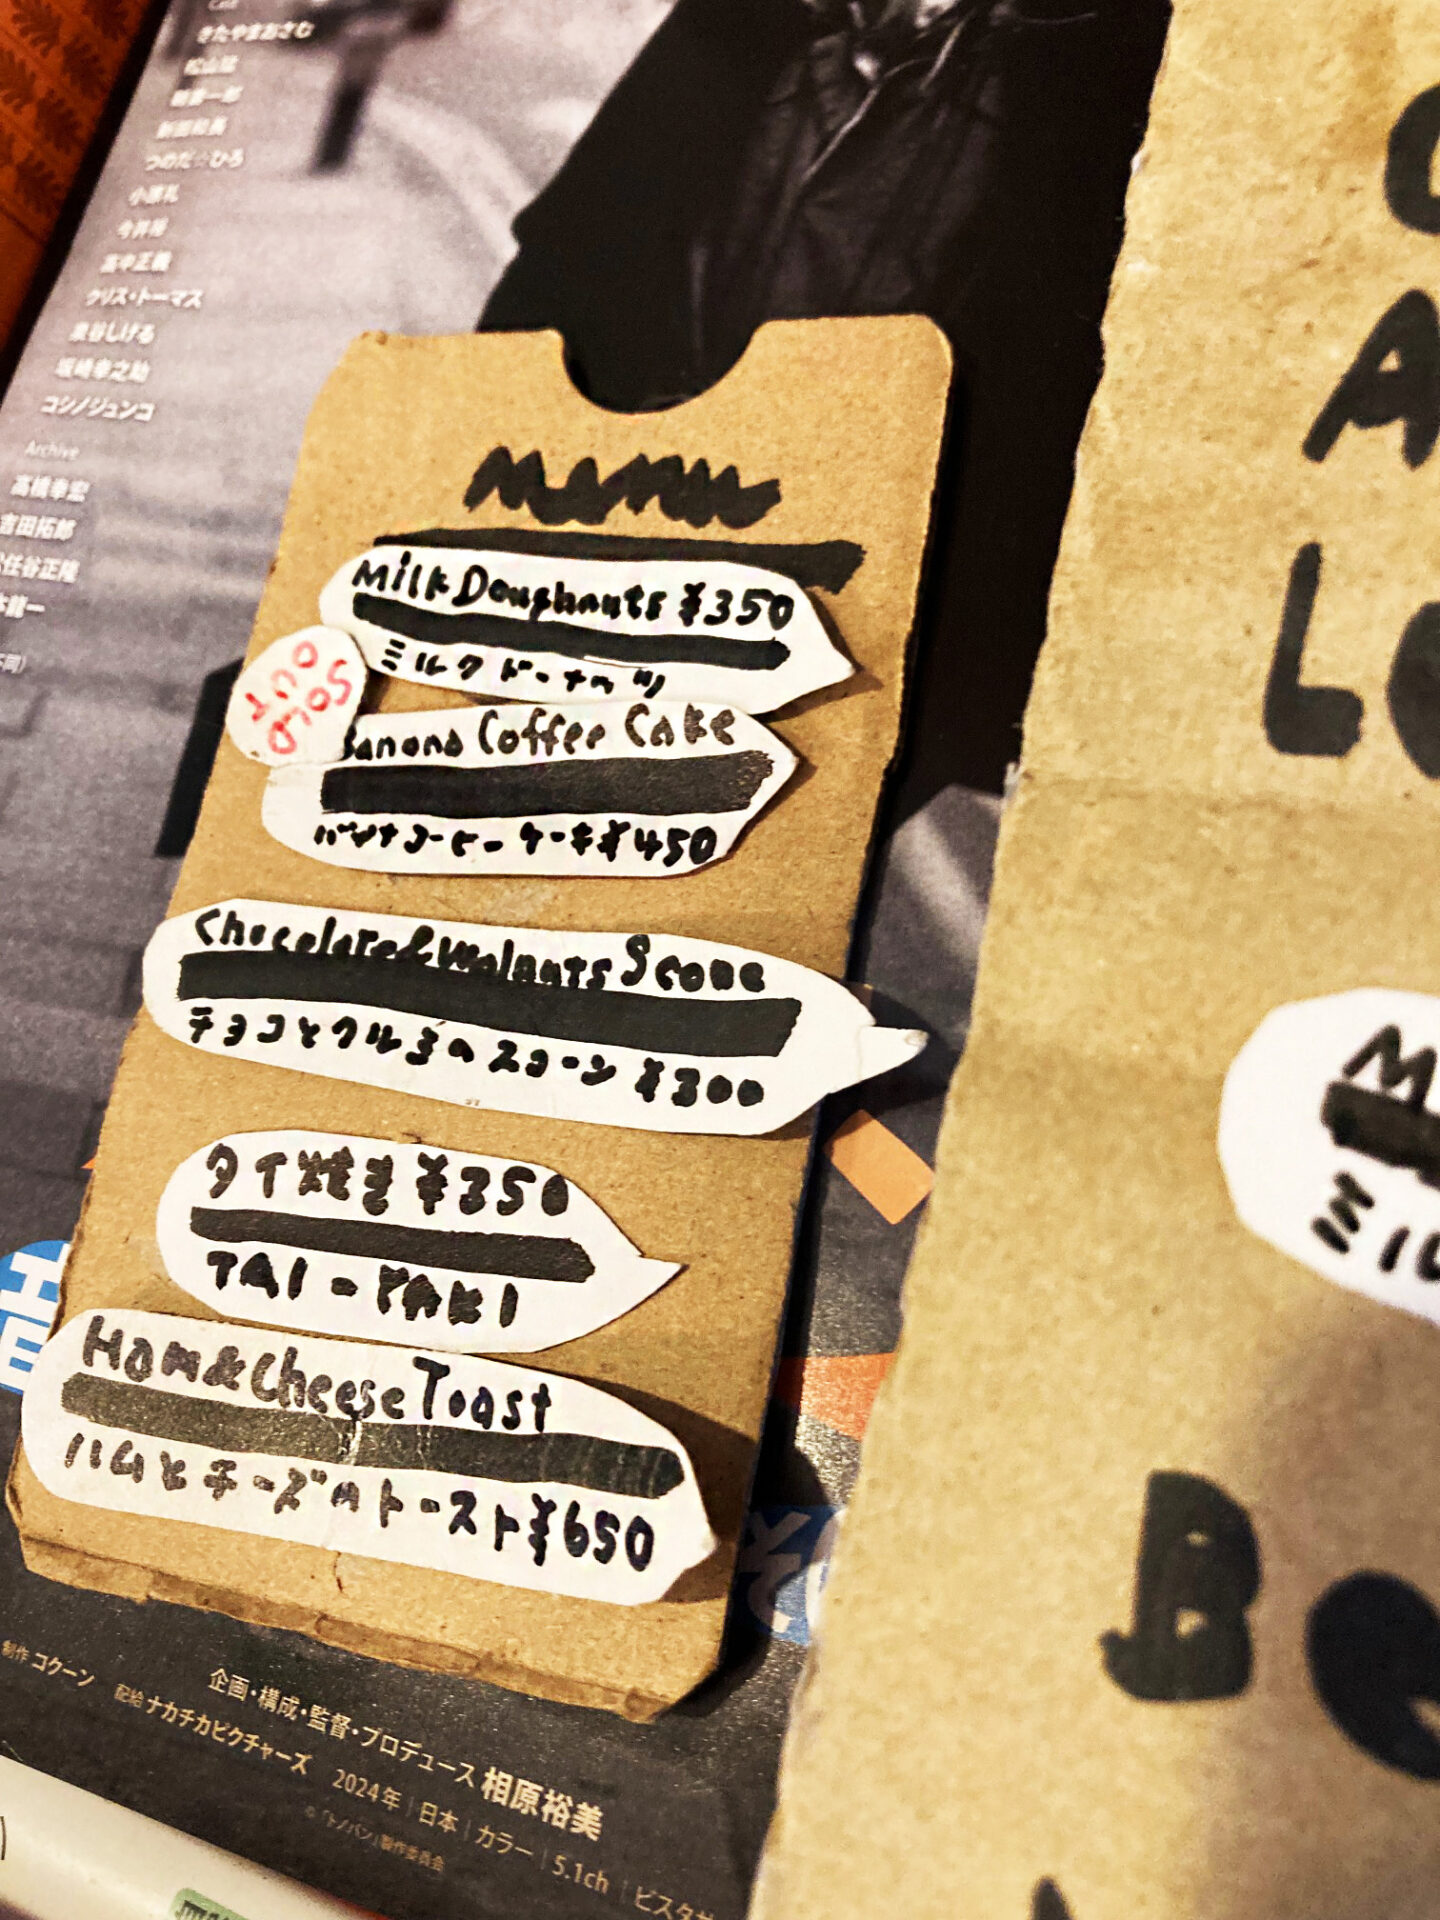 Cast
きたやまおさむ
松山猛
朝妻一郎
新田和長
つのだ☆ひろ
小原礼
今井裕
高中正義
クリス・トーマス
泉谷しげる
坂崎幸之助
コシノジュンコ
Archive
高橋幸宏
吉田拓郎
任谷正隆
龍一
不同)
Menu
Milk Doughnuts ¥350
ミルク ドーナッツ
SOLD
OUT
Banana Coffee Cake
バナナコーヒーケーキ¥450
Chocolate&Walnuts Scone
チョコとクルミのスコーン ¥300
タイ焼き ¥350
TAI-YAKI
Ham&Cheese Toast
ハムとチーズのトースト¥650
音
そ
企画・構成・監督・プロデュース 相原裕美
制作 コクーン 配給 ナカチカピクチャーズ 2024年 | 日本 | カラー | 5.1ch | ビスタサ
©「トノバン」製作委員会
A
L
M
ミル
B